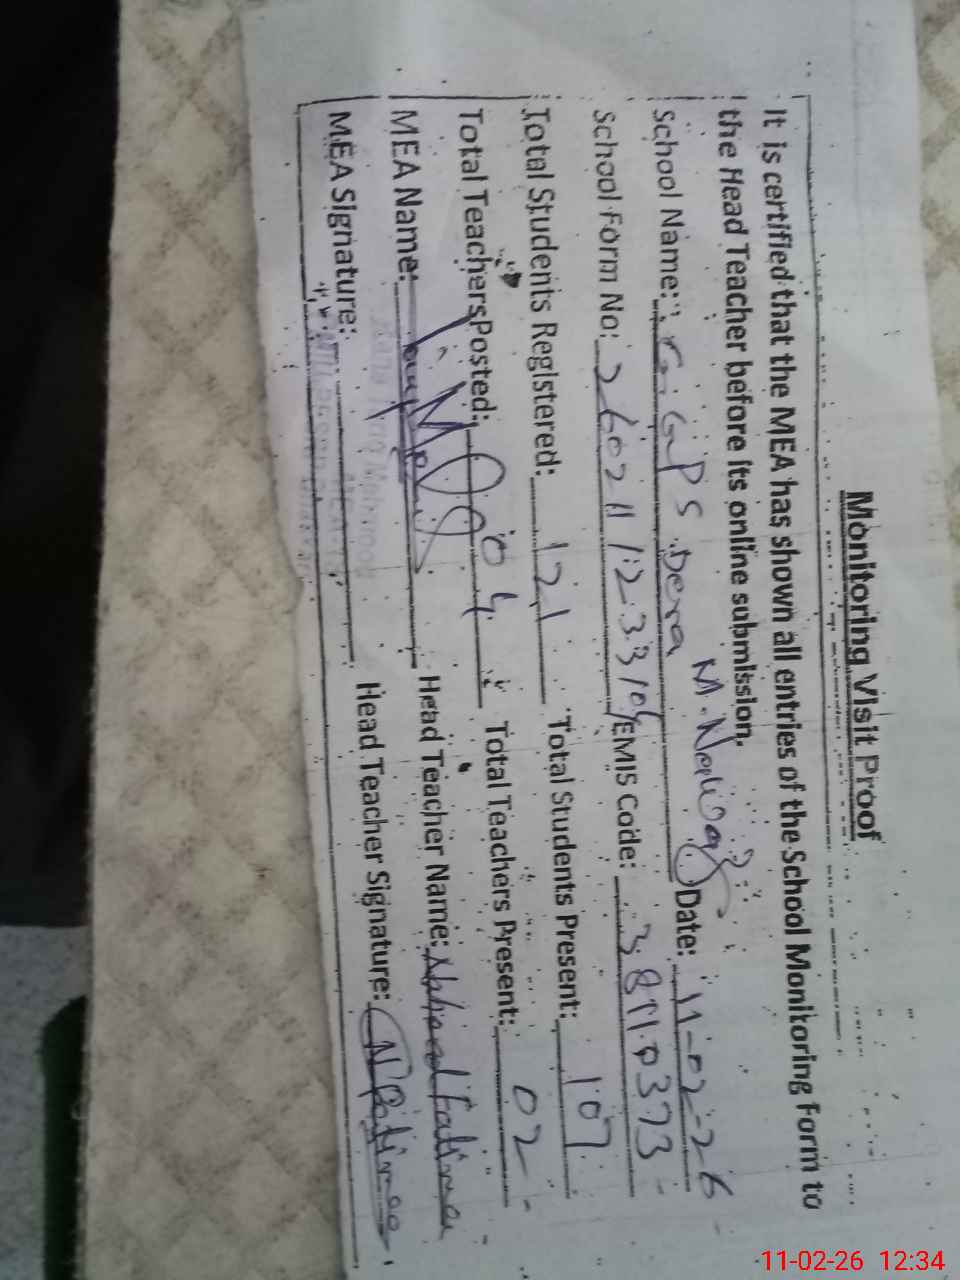 Monitoring Visit Proof
It is certified that the MEA has shown all entries of the School Monikoring Form to
the Head Teacher before its online submission.
School Name: G. GPS Dera M. Nawaz Date: 11-02-26
School Form No: 260211123310 EMIS Code: 38110373
Total Students Registered: 121 Total Students Present: 107
Total Teachers Posted: 04 Total Teachers Present: 02
MEA Name: Head Teacher Name: Naheed Fatima
MEA Signature: Head Teacher Signature: N Fatima
11-02-26 12:34